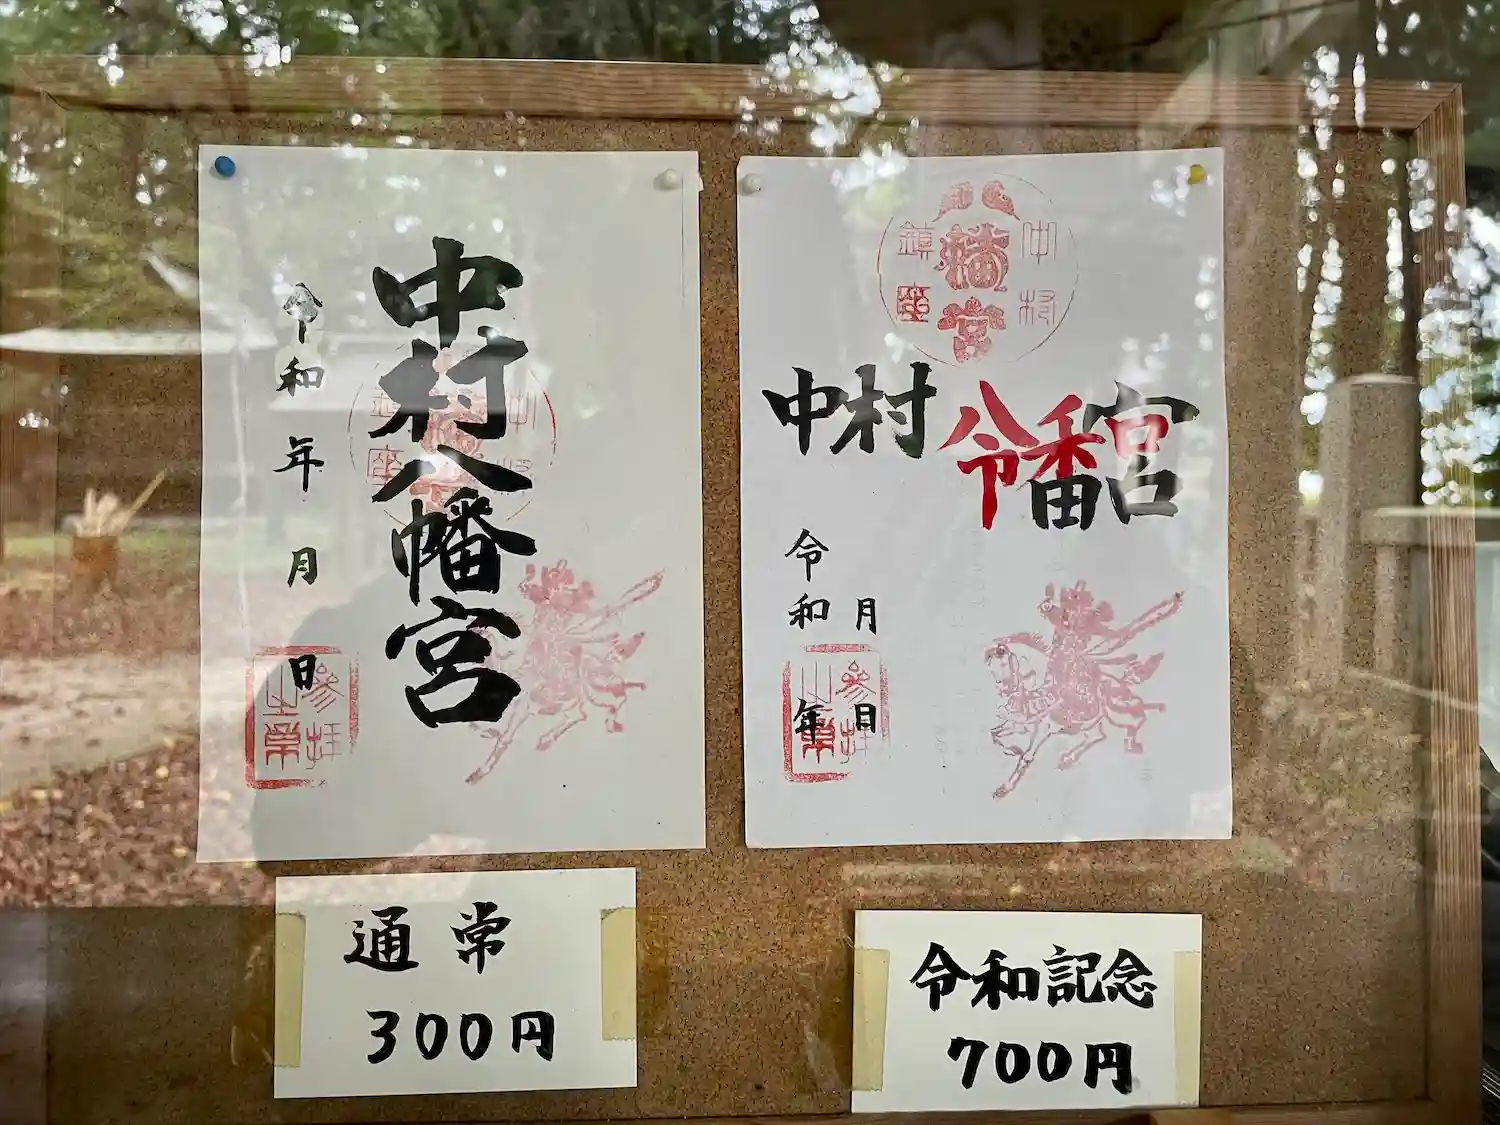 中村八幡宮
令和 年 月 日
参拝之章
八幡宮
中村
鎮座
中村八幡宮
令和
令和 年
月 日
参拝之章
通常
300円
令和記念
700円